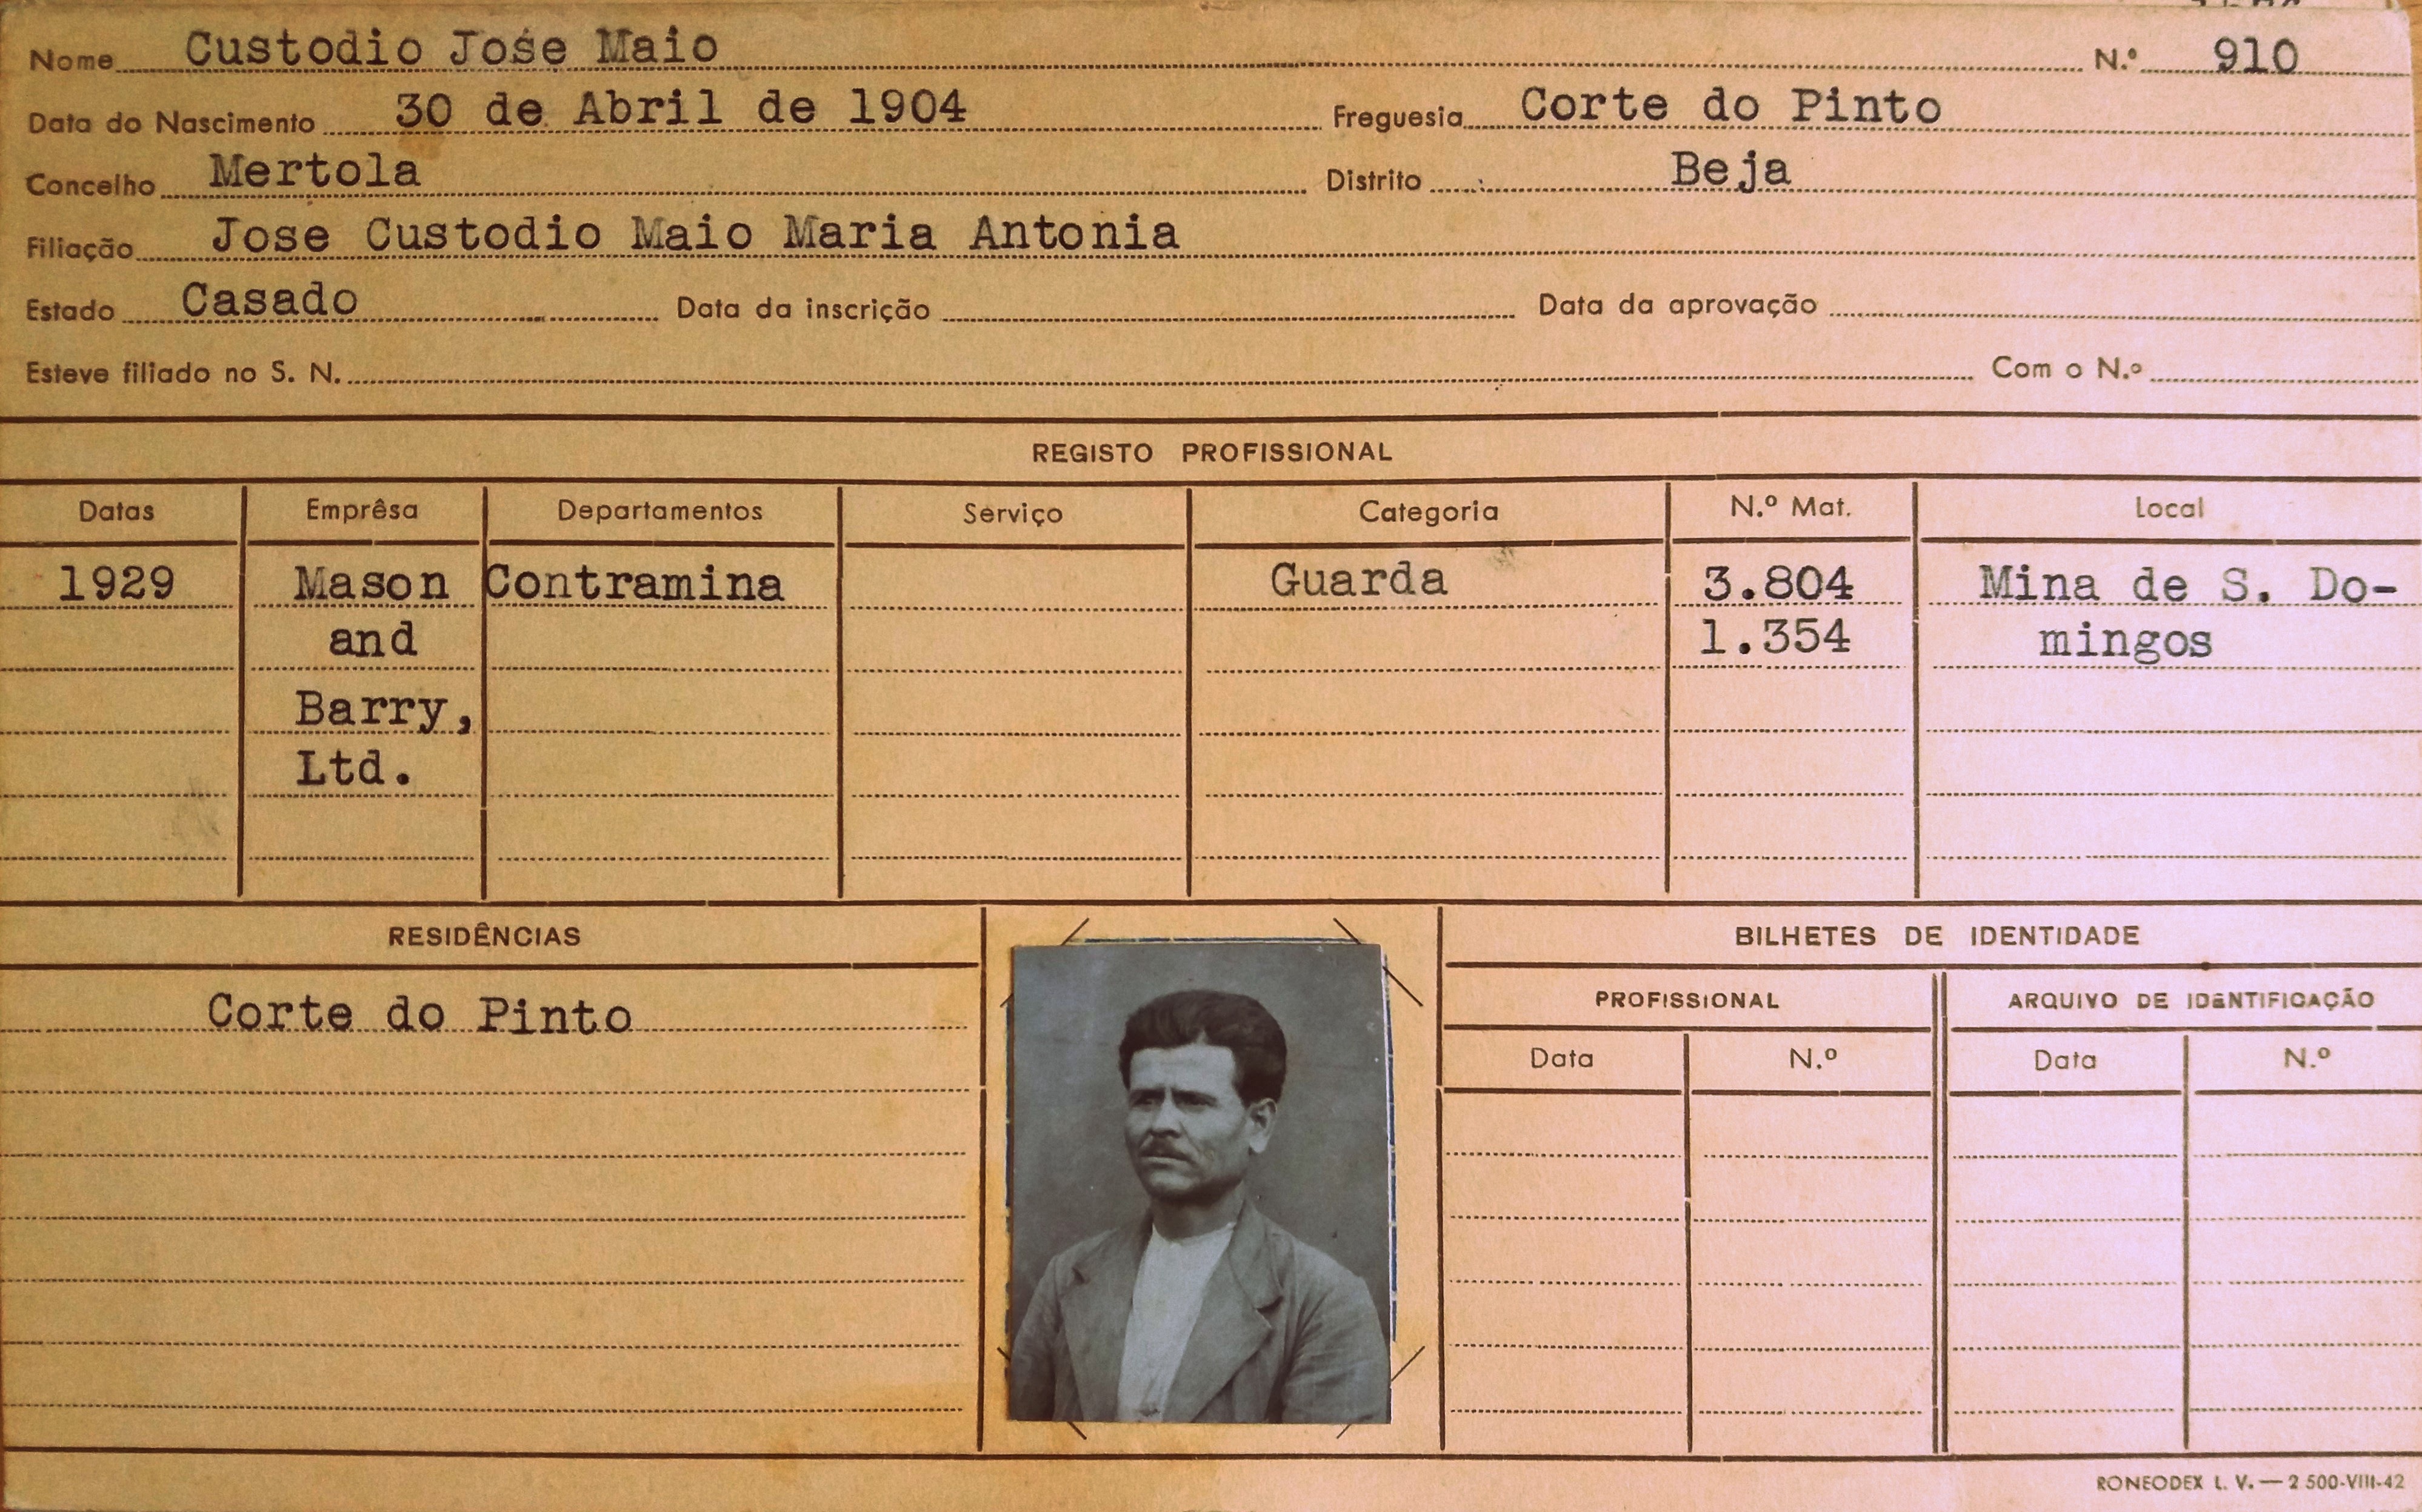 Nome Custodio José Maio N.º 910
Data do Nascimento 30 de Abril de 1904 Freguesia Corte do Pinto
Concelho Mertola Distrito Beja
Filiação Jose Custodio Maio Maria Antonia
Estado Casado Data da inscrição Data da aprovação
Esteve filiado no S. N. Com o N.º
REGISTO PROFISSIONAL
Datas Emprêsa Departamentos Serviço Categoria N.º Mat. Local
1929 Mason Contramina Guarda 3.804 Mina de S. Do-
and 1.354 mingos
Barry,
Ltd.
RESIDÊNCIAS BILHETES DE IDENTIDADE
Corte do Pinto PROFISSIONAL ARQUIVO DE IDENTIFICAÇÃO
Data N.º Data N.º
RONEODEX L. V. — 2 500-VIII-42